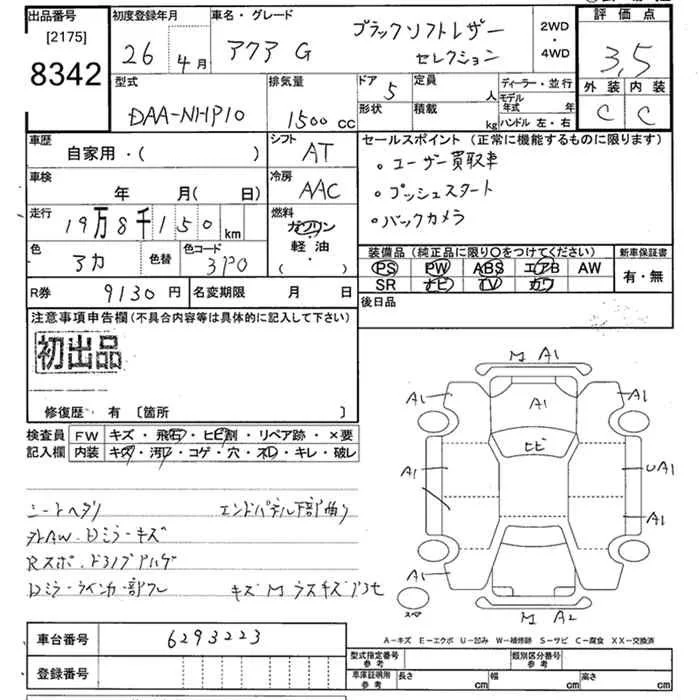 出品番号
[2175]
8342
初度登録年月
26 年 4月
車名・グレード
アクア G ブラックソフトレザー
セレクション
2WD
・
4WD
評価点
3,5
外装 内装
C C
型式
DAA-NHP10
排気量
1500 cc
ドア
5
定員
人
形状
積載
kg
ディーラー・並行
モデル年式 年
ハンドル 左・右
車歴
自家用・( )
シフト
AT
セールスポイント (正常に機能するものに限ります)
・ユーザー買取車
・プッシュスタート
・バックカメラ
車検
年 月( 日)
冷房
AAC
走行
19万8千150 km
燃料
ガソリン
・
軽油
( ・ )
色
アカ
色替
色コード
3P0
装備品 (純正品に限り〇をつけてください)
PS PW ABS エアB AW
SR ナビ TV カワ
新車保証書
有・無
R券 9130 円
名変期限 月 日
後日品
注意事項申告欄 (不具合内容等は具体的に記入して下さい)
初出品
修復歴・ 有 〔箇所 〕
検査員
記入欄
FW キズ・飛石・ヒビ割・リペア跡・×要
内装 キズ・汚レ・コゲ・穴・スレ・キレ・破レ
シートヘタリ エンドパネル下部曲り
外AW・Dミラーキズ
Dミラーウインカー部ワレ
M A1
A1 A1 A1
ヒビ
A1 UA1
A1
A1 A1
スペア
M A2
A-キズ E-エクボ U-凹み W-補修跡 S-サビ C-腐食 XX-交換済
車台番号 6293223
登録番号
型式指定番号
参考
類別区分番号
参考
車庫証明用
参考
長さ cm
幅 cm
高さ cm